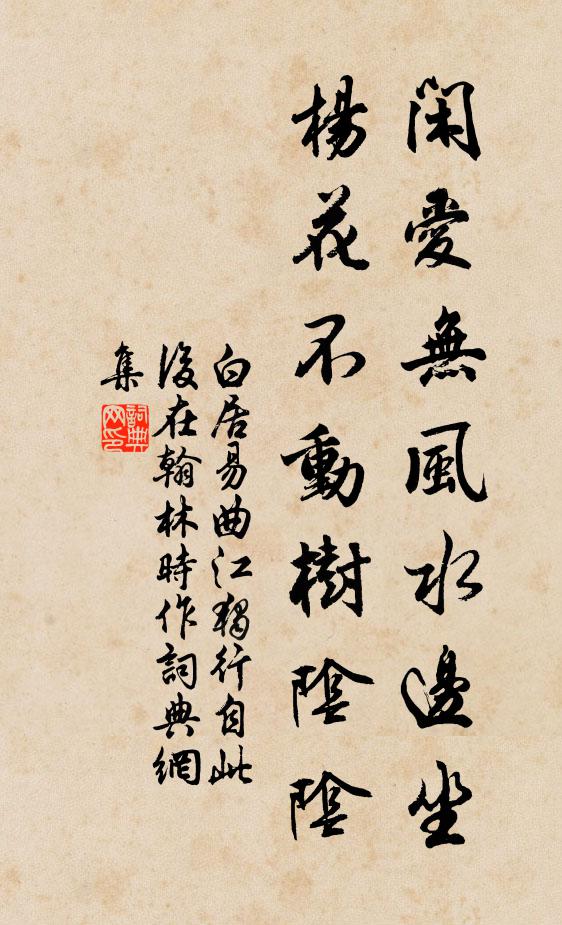 閑愛無風水邊坐
楊花不動樹陰陰
白居易曲江獨行自此
後在翰林時作詞典網
集
詞典
网印